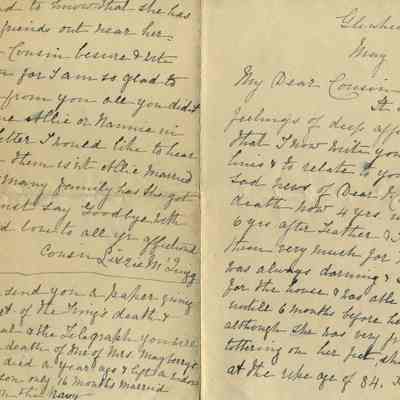 d to know that she has
friends out near her
Cousin besure & wt
for I am so glad to
from you all you didnt
me Allie or Nannie in
letter I would like to hear
them isnt Allie Married
many family has she got
must say Good bye with
d love to all yr affectionat
Cousin Lizzie M
send you a paper giving
of the King's death &
the Telegraph you will
death of one of Mrs. Mayberry's
died a year ago & left a
son only 16 months married
in the navy
Glashee
May
My Dear Cousin
It
feelings of deep affe
that I now write you
lines & to relate to you
sad news of Dear
death now 4 yrs
6 yrs after Father &
them very much for
was always darning &
for the house & was able
untill 6 months before he
although she was very fr
tottering on her feet she
at the ripe age of 84.